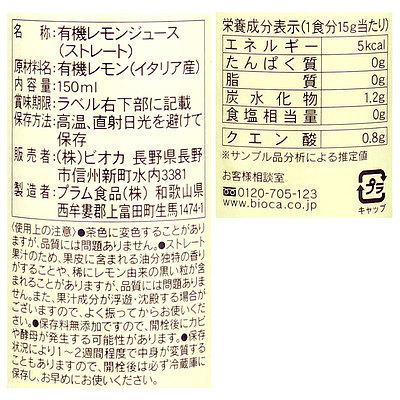 名　称:有機レモンジュース
(ストレート)
原材料名:有機レモン(イタリア産)
内容量:150ml
賞味期限:ラベル右下部に記載
保存方法:高温、直射日光を避けて
保存
販売者:(株)ビオカ 長野県長野
市信州新町水内3381
製造者:プラム食品(株) 和歌山県
西牟婁郡上富田町生馬1474-1
〈使用上の注意〉●茶色に変色することがあり
ますが、品質には問題ありません。●ストレート
果汁のため、果皮に含まれる油分独特の香り
がすることや、稀にレモン由来の黒い粒が含
まれることがありますが、品質には問題ありま
せん。また、果汁成分が浮遊・沈殿する場合が
ございますので、よく振ってからお使いくださ
い。●保存料無添加ですので、開栓後にカビ
や酵母が発生する可能性があります。●保存
状況により1〜2週間程度で中身が変質する
こともありますので、開栓後は必ず冷蔵庫に
保存し、お早めにお使いください。
栄養成分表示(1食分15g当たり)
エネルギー 5kcal
たんぱく質 0g
脂質 0g
炭水化物 1.2g
食塩相当量 0g
クエン酸 0.8g
※サンプル品分析による推定値
お客様相談室
0120-705-123
www.bioca.co.jp
プラ
キャップ